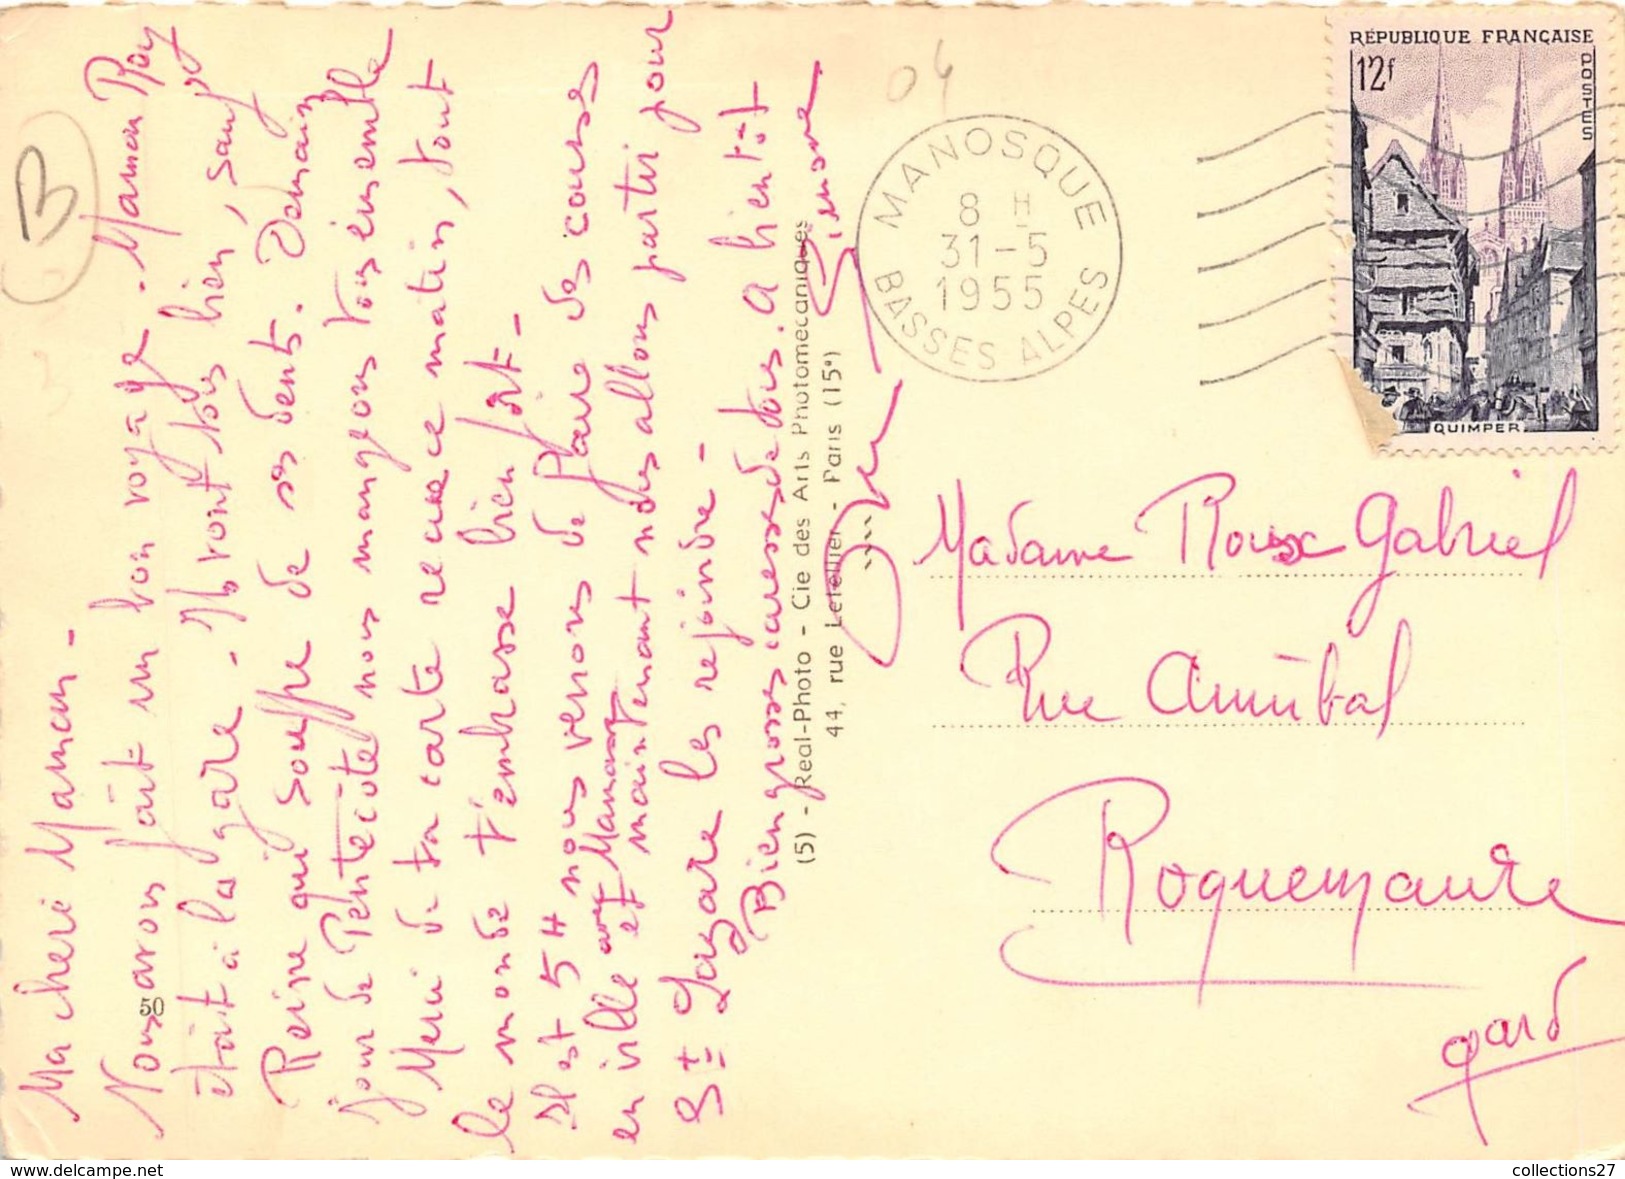 Ma cheré Maman -
Nous avons fait un bon voyage - Maman Roy
était à la gare - Ils vont tous bien, sauf
Reine qui souffre de ses dents. Demain
jour de Pentecôte nous mangeons tous ensemble
Merci de ta carte reçue ce matin, tout
le monde t'embrasse bien fort -
Il est 5H nous venons de faire des courses
en ville avec Maman et maintenant nous allons partir pour
St Lazare les rejoindre -
Bien grosses caresses de tous. A bientôt
Simone
50
(5) - Real-Photo - Cie des Arts Photomecaniques
44, rue Letellier - Paris (15e)
B
04
MANOSQUE
8 H
31-5
1955
BASSES ALPES
RÉPUBLIQUE FRANÇAISE
12f
POSTES
QUIMPER
Madame Roux Gabriel
Rue Annibal
Roquemaure
Gard
www.delcampe.net
collections27